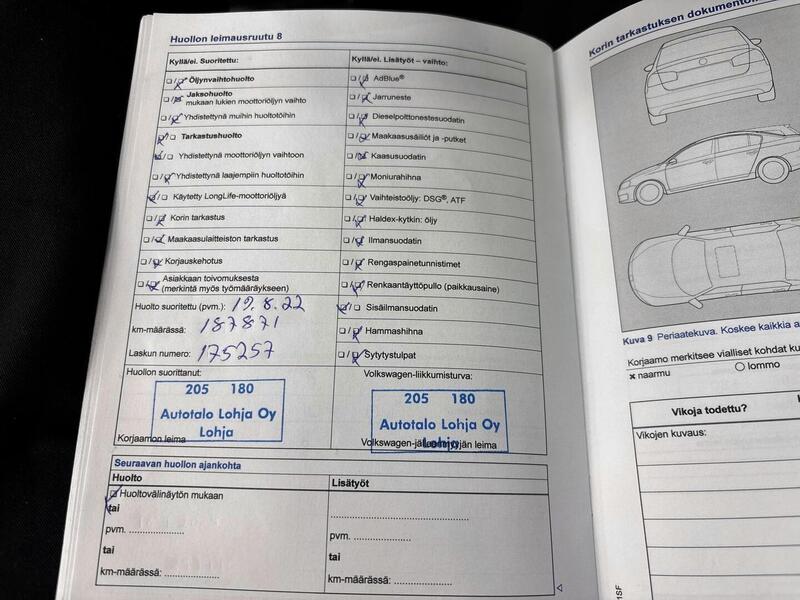 Huollon leimausruutu 8
Kyllä/ei. Suoritettu:
Öljynvaihtohuolto
Jaksohuolto
mukaan lukien moottoriöljyn vaihto
Yhdistettynä muihin huoltotöihin
Tarkastushuolto
Yhdistettynä moottoriöljyn vaihtoon
Yhdistettynä laajempiin huoltotöihin
Käytetty LongLife-moottoriöljyä
Korin tarkastus
Maakaasulaitteiston tarkastus
Korjauskehotus
Asiakkaan toivomuksesta
(merkintä myös työmääräykseen)
Huolto suoritettu (pvm.): 19.8.22
km-määrässä: 187871
Laskun numero: 175257
Kyllä/ei. Lisätyöt – vaihto:
AdBlue®
Jarruneste
Dieselpolttonestesuodatin
Maakaasusäiliöt ja -putket
Kaasusuodatin
Moniurahihna
Vaihteistoöljy: DSG®, ATF
Haldex-kytkin: öljy
Ilmansuodatin
Rengaspainetunnistimet
Renkaantäyttöpullo (paikkausaine)
Sisäilmansuodatin
Hammashihna
Sytytystulpat
Huollon suorittanut:
205 180
Autotalo Lohja Oy
Lohja
Korjaamon leima
Volkswagen-liikkumisturva:
205 180
Autotalo Lohja Oy
Lohja
leima
Seuraavan huollon ajankohta
Huolto
Huoltovälinäytön mukaan
tai
pvm. ....................
tai
km-määrässä: ....................
Lisätyöt
........................................
pvm. ....................
tai
km-määrässä: ....................
Korin tarkastuksen
Kuva 9 Periaatekuva. Koskee kaikkia
Korjaamo merkitsee vialliset kohdat
× naarmu
○ lommo
Vikoja todettu?
Vikojen kuvaus: